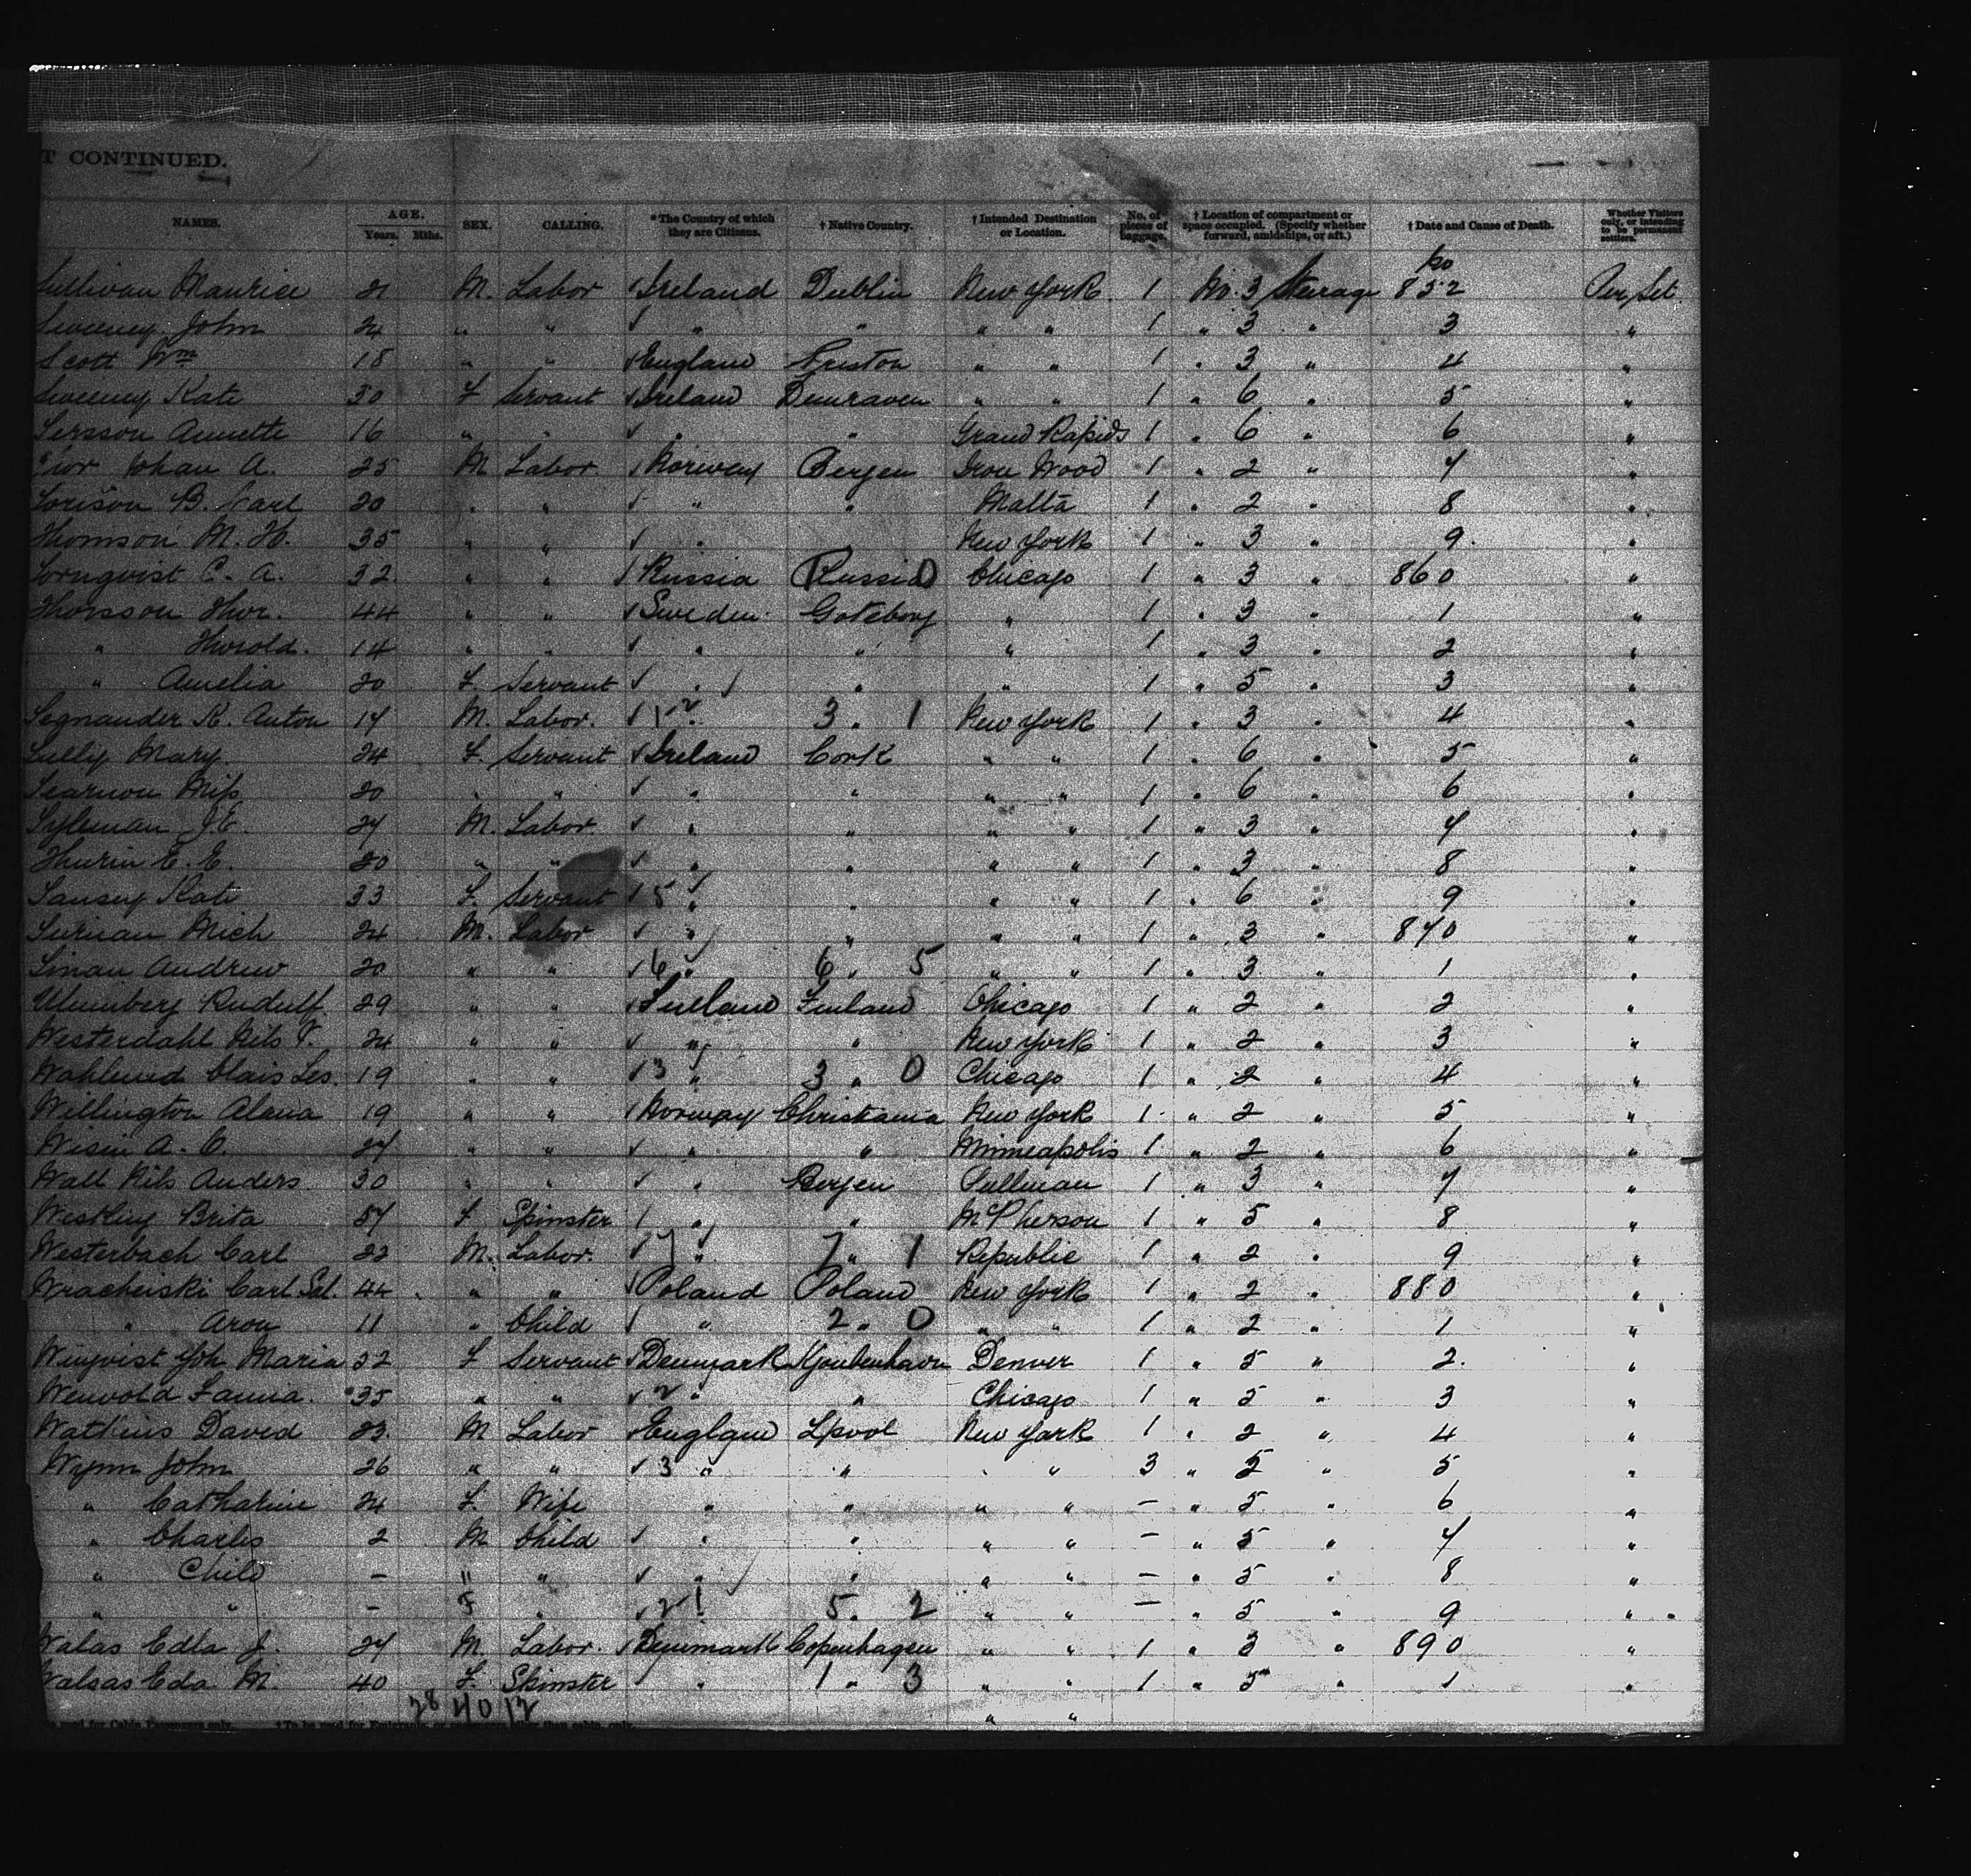 T CONTINUED.
NAMES. AGE. Years. Mths. SEX. CALLING. *The Country of which they are Citizens. † Native Country. † Intended Destination or Location. No. of pieces of baggage. † Location of compartment or space occupied. (Specify whether forward, amidships, or aft.) † Date and Cause of Death. Whether Visitors only, or intending to be permanent settlers.
No
Sullivan Maurice 21 M. Labor Ireland Dublin New York. 1 No. 3 Steerage 852 Per Set.
Sweeney John 24 " " " " " " 1 " 3 " 3 "
Scott Wm 18 " " England Preston " " 1 " 3 " 4 "
Sweeney Kate 30 F Servant Ireland Dunraven " " 1 " 6 " 5 "
Annette 16 " " " " Grand Rapids 1 " 6 " 6 "
Johan A. 25 M Labor Norway Bergen Iron Wood 1 " 2 " 7 "
B. Carl 20 " " " " Malta 1 " 2 " 8 "
Thomson M. H. 35 " " " " New York 1 " 3 " 9 "
Tornqvist C. A. 32 " " Russia Russia Chicago 1 " 3 " 860 "
Thorsson Thor. 44 " " Sweden Goteborg " 1 " 3 " 1 "
" Thorold. 14 " " " " " 1 " 3 " 2 "
" Amelia 20 F. Servant " " " 1 " 5 " 3 "
Segnander K. Anton 17 M. Labor. 12 " 3 " 1 New York 1 " 3 " 4 "
Mary 24 F. Servant Ireland Cork " " 1 " 6 " 5 "
Miss 20 " " " " " " 1 " 6 " 6 "
J.E. 27 M. Labor " " " " 1 " 3 " 7 "
Thurin E. E. 20 " " " " " " 1 " 3 " 8 "
Tansey Kate 33 F. Servant 5 " " " " 1 " 6 " 9 "
Mich 24 M. Labor " " " " 1 " 3 " 870 "
Andrew 20 " " 6 " 6 " 5 " " 1 " 3 " 1 "
Rudulf 29 " " Finland Finland Chicago 1 " 2 " 2 "
Westerdahl Nils F. 24 " " " " New York 1 " 2 " 3 "
Wahlund Clais Les. 19 " " 3 " 3 " 0 Chicago 1 " 2 " 4 "
Willington 19 " " Norway Christania New York 1 " 2 " 5 "
Wisin A. C. 27 " " " " Minneapolis 1 " 2 " 6 "
Wall Nils Anders 30 " " " Bergen Pullman 1 " 3 " 7 "
Westling Brita 57 F Spinster " " McPherson 1 " 5 " 8 "
Westerbach Carl 22 M. Labor. 7 " 7 " 1 Republic 1 " 2 " 9 "
Carl Sal. 44 " " Poland Poland New York 1 " 2 " 880 "
" Aron 11 " Child " 2 " 0 " " 1 " 2 " 1 "
Maria 32 F Servant Denmark Kjoubenhavn Denver 1 " 5 " 2. "
Wenvold Fanna. 35 " " 2 " " Chicago 1 " 5 " 3 "
Watkins David 23. M Labor England Lpool New York 1 " 2 " 4 "
Wynn John 26 " " 3 " " " " 3 " 5 " 5 "
" Catharine 24 F. Wife " " " " - " 5 " 6 "
" Charles 2 M Child " " " " - " 5 " 7 "
" Child - " " " " " " - " 5 " 8 "
" " - F " 2 " 5 " 2 " " - " 5 " 9 "
Walas Edla J. 27 M Labor. Denmark Copenhagen " " 1 " 3 " 890 "
Walsas Eda M. 40 F. Spinster " 1 " 3 " " 1 " 5 " 1 "
28 40 12 " "
† To be used for Emigrants, or passengers other than cabin, only.